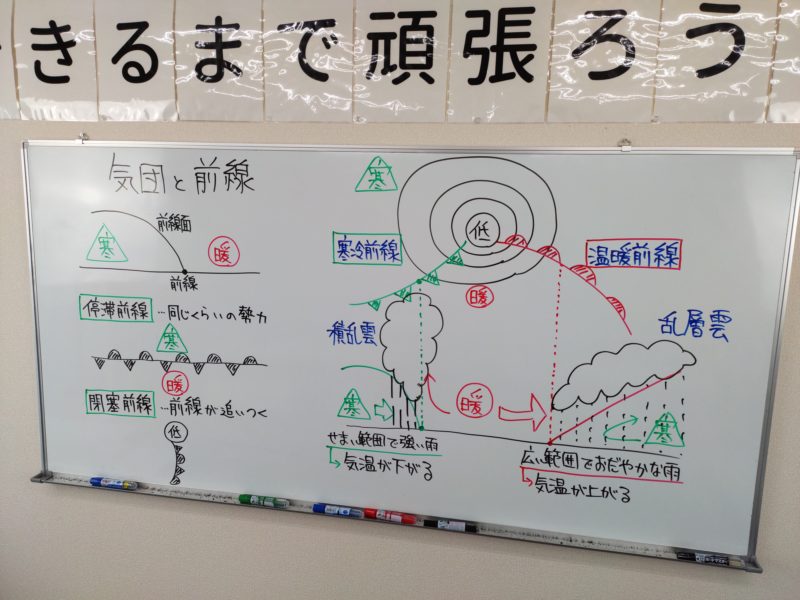 きるまで頑張ろう
気団と前線
前線面
寒
暖
前線
停滞前線 …同じくらいの勢力
寒
暖
閉塞前線 …前線が追いつく
低
寒
低
寒冷前線
温暖前線
暖
積乱雲
乱層雲
寒
暖
寒
せまい範囲で強い雨
気温が下がる
広い範囲でおだやかな雨
気温が上がる